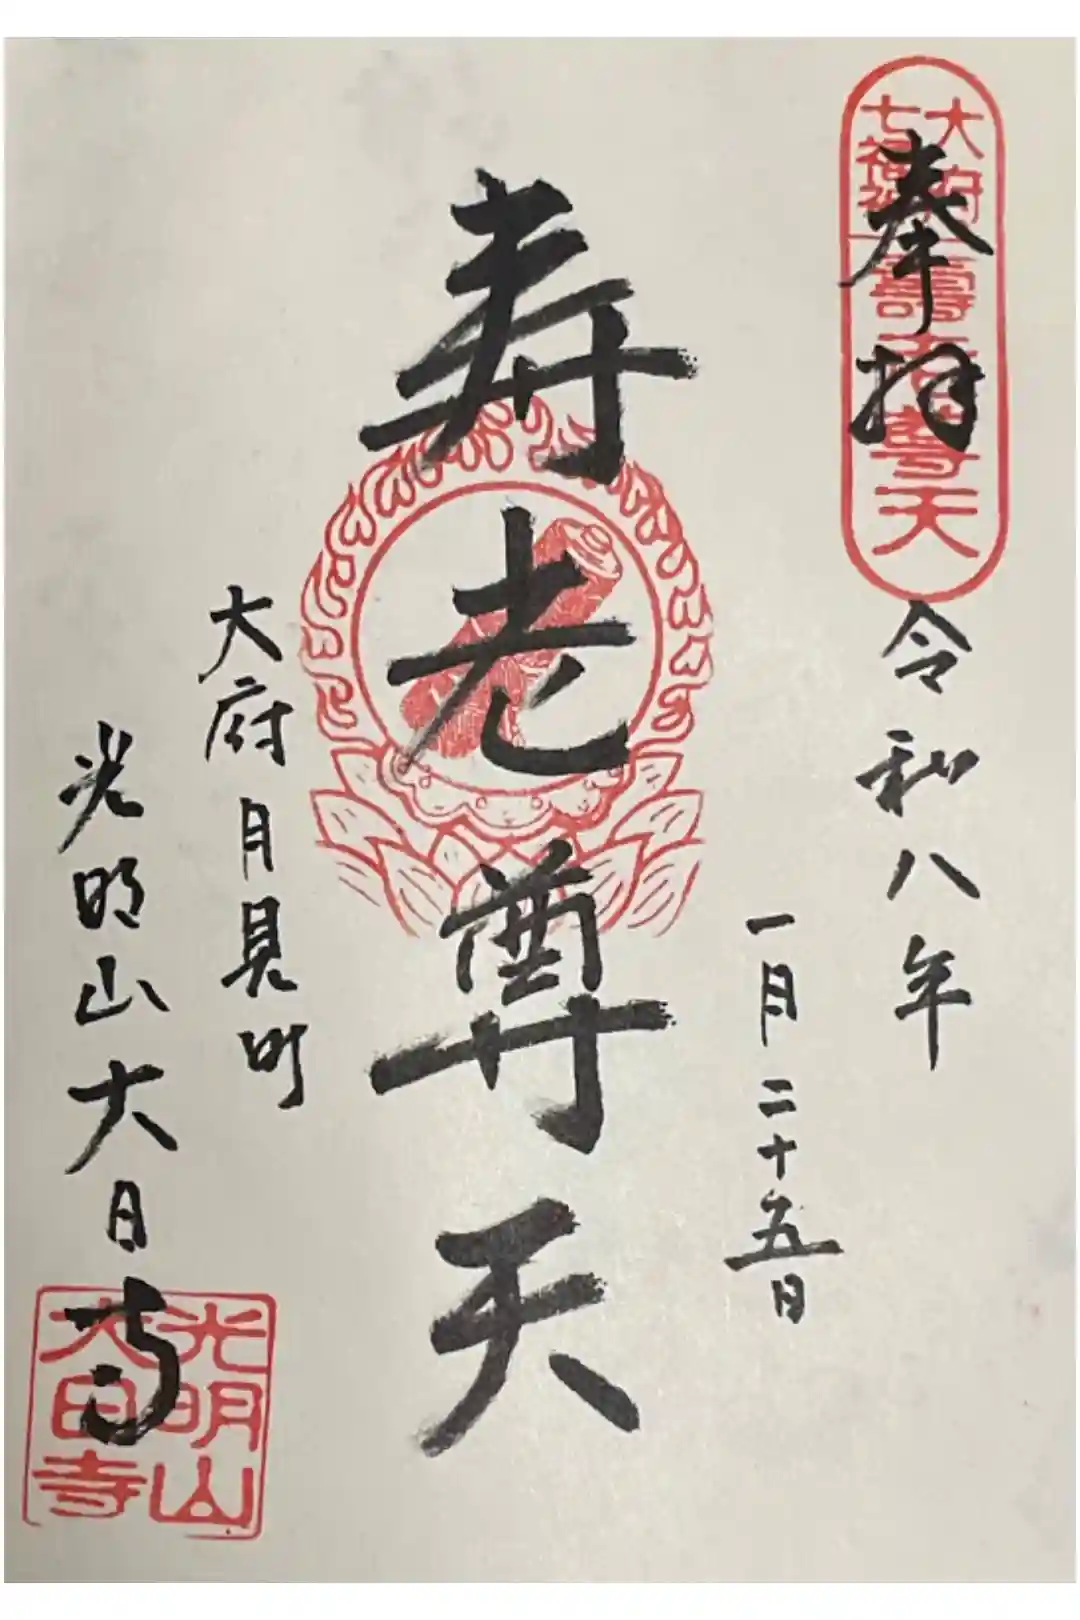 大府
七福神
壽老尊天
奉拝
令和八年
一月二十五日
寿老尊天
大府月見町
光明山大日寺
光明山
大日寺